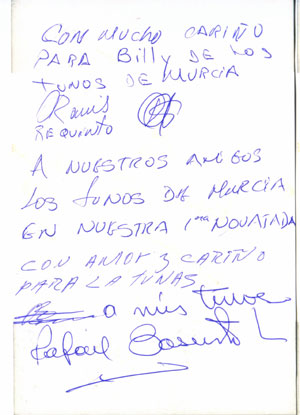 CON MUCHO CARIÑO
PARA Billy DE LOS
TUNOS DE MURCIA
REQUINTO
A NUESTROS AMIGOS
LOS TUNOS DE MURCIA
EN NUESTRA 1ª NOVATADA
CON AMOR Y CARIÑO
PARA LA TUNAS
a mis
Rafael